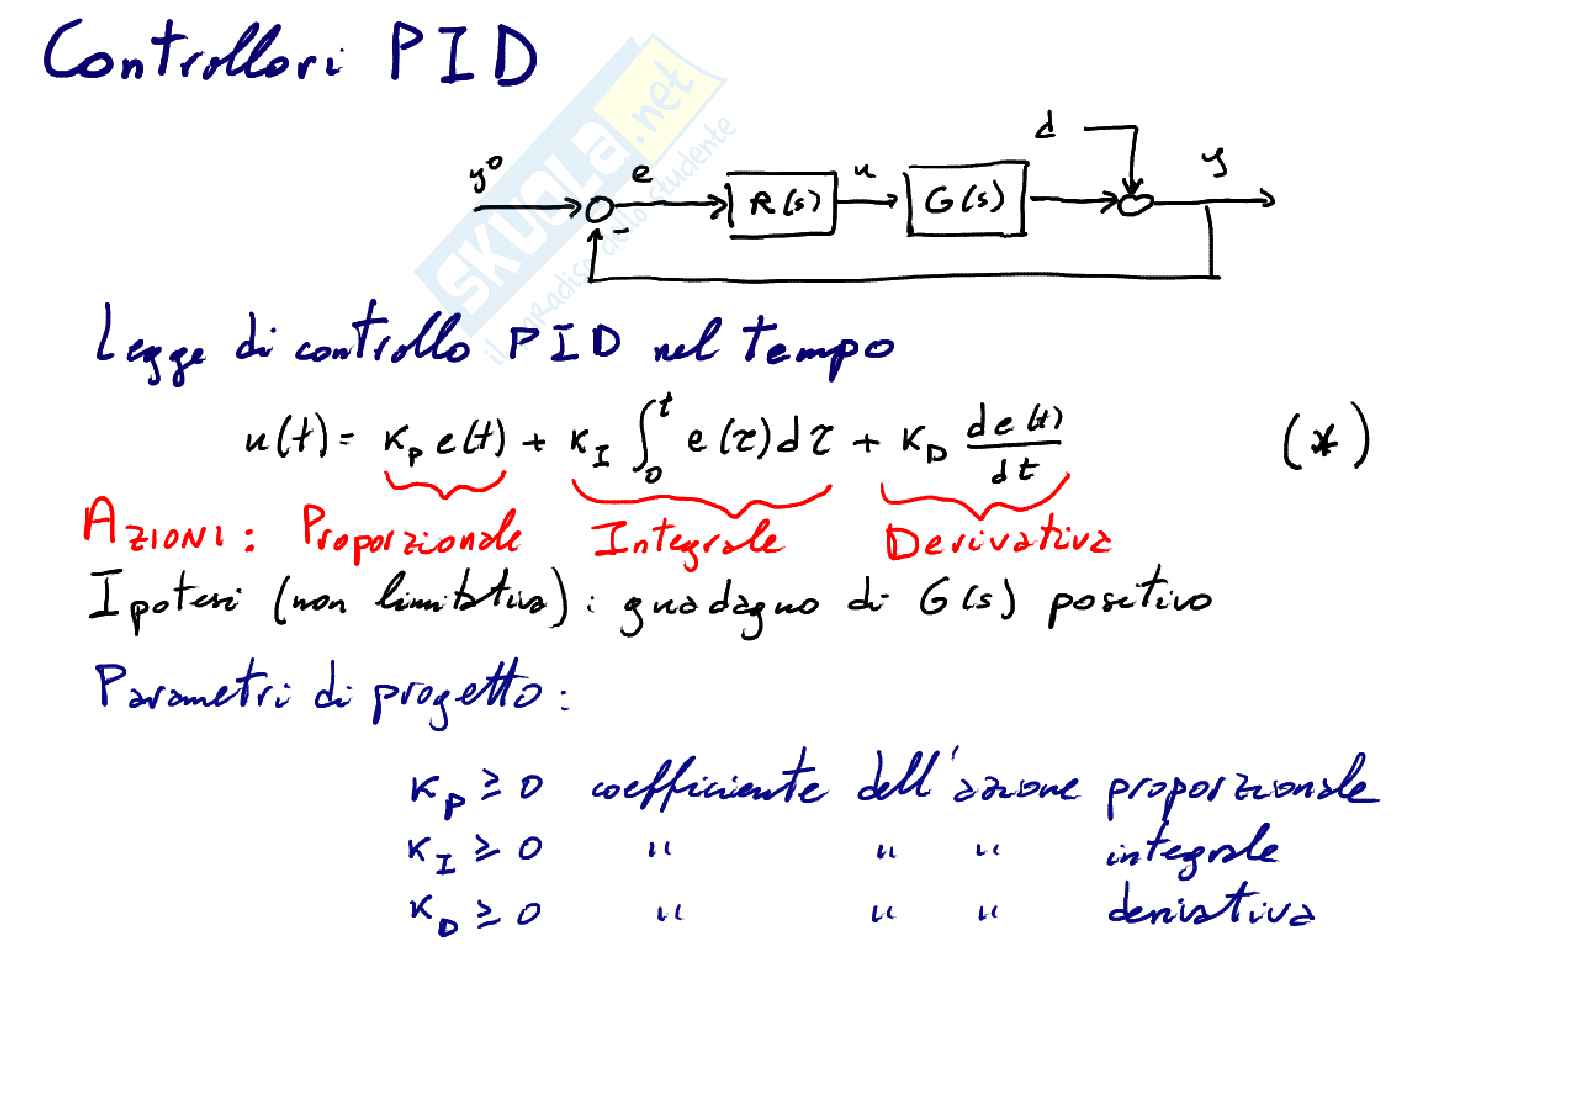 Controllori PID
SKUOLA.net
il paradiso dello studente
y° e R(s) u G(s) d y
-
Legge di controllo PID nel tempo
u(t) = K_P e(t) + K_I ∫_0^t e(τ)dτ + K_D de(t)/dt (*)
AZIONI: Proporzionale Integrale Derivativa
Ipotesi (non limitativa): guadagno di G(s) positivo
Parametri di progetto:
K_P ≥ 0 coefficiente dell'azione proporzionale
K_I ≥ 0 " " " integrale
K_D ≥ 0 " " " derivativa